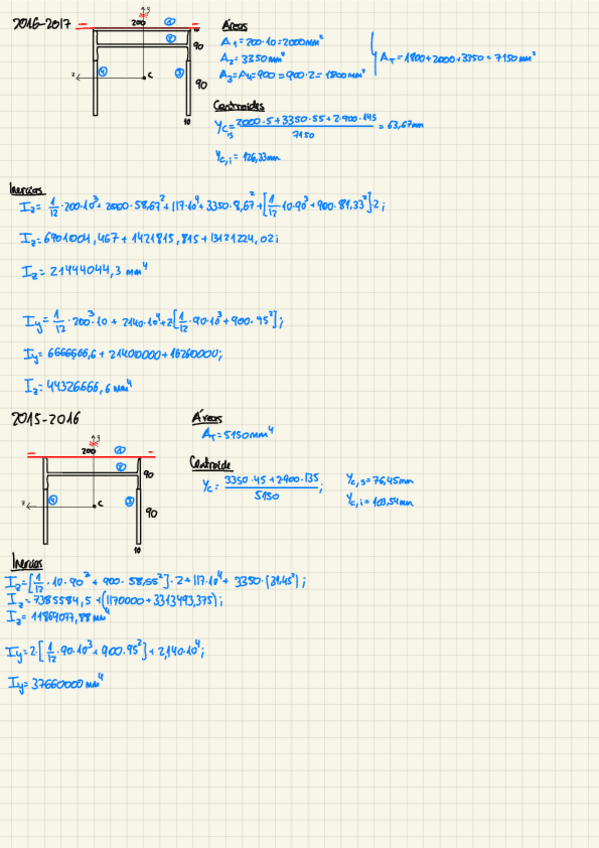 2016-2017
200
y
1
2
90
z
4
C
3
90
10
Áreas
A1 = 200·10 = 2000mm²
A2 = 3350mm²
A3 = A4 = 900 = 900·2 = 1800mm²
AT = 1800+2000+3350 = 7150mm²
Centroides
Yc,s = (2000·5+3350·55+2·900·145)/7150 = 63,67mm
Yc,i = 126,33mm
Inercias
Iz = 1/12·200·10³+2000·58,67²+117·10⁴+3350·8,67²+[1/12·10·90³+900·81,33²]2;
Iz = 6901004,467 + 1421815,815 + 13121224,02;
Iz = 21444044,3 mm⁴
Iy = 1/12·200³·10 + 2140·10⁴+2[1/12·90·10³+900·95²];
Iy = 6666666,6 + 21400000+16260000;
Iz = 44326666,6 mm⁴
2015-2016
200
y
1
2
90
z
4
C
3
90
10
Áreas
AT = 5150mm⁴
Centroide
Yc = (3350·45+2·900·135)/5150;
Yc,s = 76,45mm
Yc,i = 103,54mm
Inercias
Iz = [1/12·10·90³+900·58,55²]·2+117·10⁴+3350·(31,45²);
Iz = 7385584,5+(1170000+3313493,375);
Iz = 11869077,88mm⁴
Iy = 2·[1/12·90·10³+900·95²]+2,140·10⁴;
Iy = 37660000mm⁴